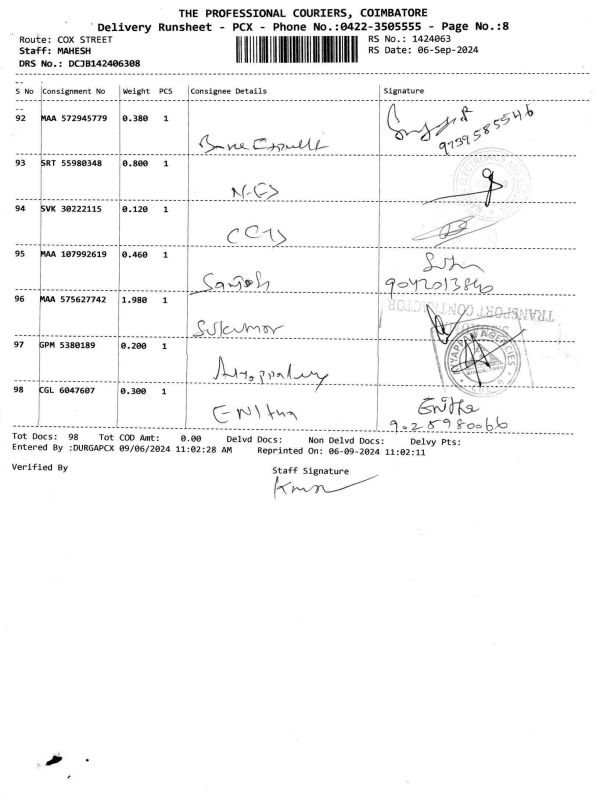 THE PROFESSIONAL COURIERS, COIMBATORE
Delivery Runsheet - PCX - Phone No.:0422-3505555 - Page No.:8
Route: COX STREET RS No.: 1424063
Staff: MAHESH RS Date: 06-Sep-2024
DRS No.: DCJB142406308
S No Consignment No Weight PCS Consignee Details Signature
92 MAA 572945779 0.380 1
9739585546
93 SRT 55980348 0.800 1
NES
94 SVK 30222115 0.120 1
CCTS
95 MAA 107992619 0.460 1
Santosh 9042013840
96 MAA 575627742 1.980 1
TRANSPORT CONTRACTOR
Sukumar
97 GPM 5380189 0.200 1
AYYAPPA AGENCIES
98 CGL 6047607 0.300 1
Enitha Enitha
9025980066
Tot Docs: 98 Tot COD Amt: 0.00 Delvd Docs: Non Delvd Docs: Delvy Pts:
Entered By :DURGAPCX 09/06/2024 11:02:28 AM Reprinted On: 06-09-2024 11:02:11
Verified By Staff Signature